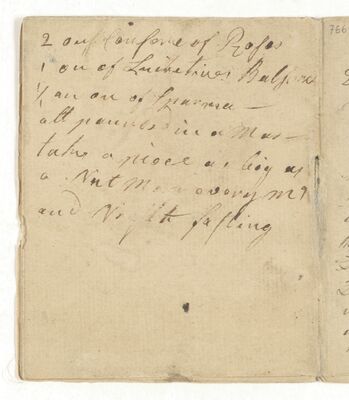 2 ouf Conserve of Roses
1 ou of Lucetines Balsom
½ an ou of Sparma —
all pounded in a Mas —
take a piece as big as
a Nut Meg every Mg
and Night fasting
766